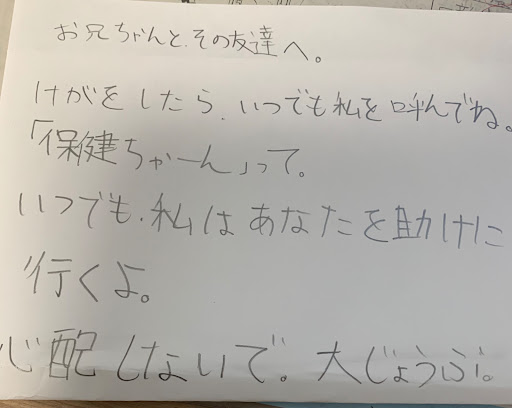 お兄ちゃんと、その友達へ。
けがをしたら、いつでも私を呼んでね。
「保健ちゃーん」って。
いつでも、私はあなたを助けに
行くよ。
心配しないで。大じょうぶ。